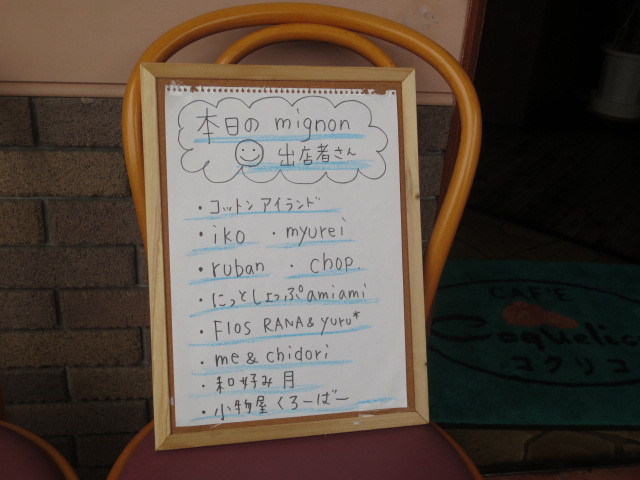 本日の mignon
出店者さん
・コットンアイランド
・iko ・myurei
・ruban ・chop.
・にっとしょっぷamiami
・FIOS RANA & yuru*
・me & chidori
・和好み 月
・小物屋くろーばー
CAF'E
Coquelic
コクリコ